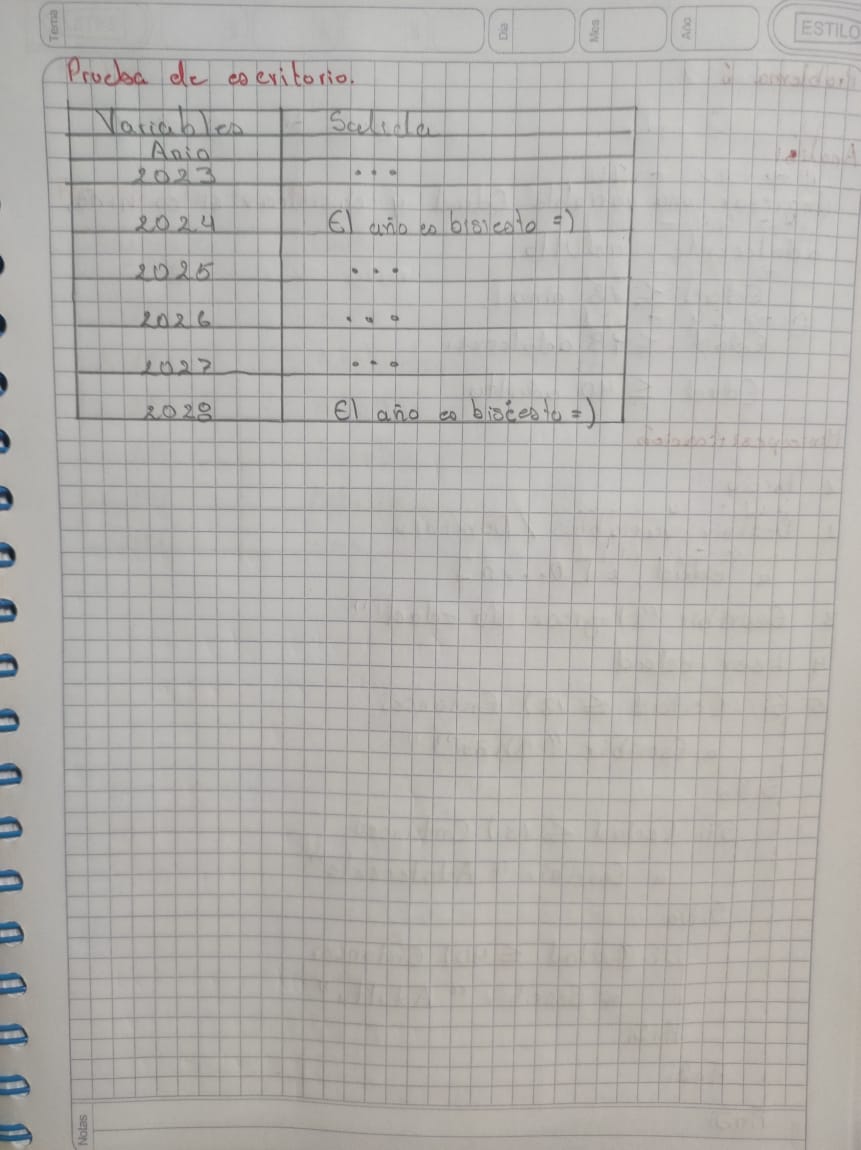 Tema
Día
Mes
Año
ESTILO
Prueba de escritorio.
Variables Salida
Anio
2023 ...
2024 El año es bisiesto =)
2025 ...
2026 ...
2027 ...
2028 El año es bisiesto =)
Notas